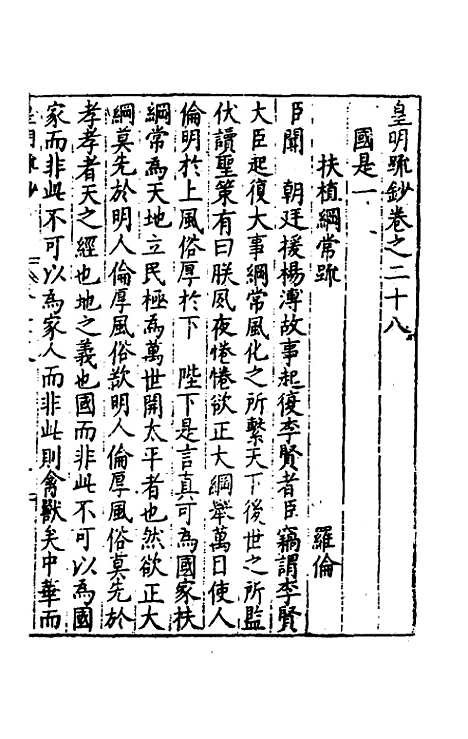 皇明疏鈔卷之二十八
國是一
扶植綱常疏　羅倫
臣聞　朝廷援楊溥故事起復李賢者臣竊謂李賢
大臣起復大事綱常風化之所繫天下後世之所監
伏讀聖策有曰朕夙夜惓惓欲正大綱舉萬目使人
倫明於上風俗厚於下　陛下是言真可為國家扶
綱常為天地立民極為萬世開太平者也然欲正大
綱莫先於明人倫厚風俗欲明人倫厚風俗莫先於
孝孝者天之經也地之義也國而非此不可以為國
家而非此不可以為家人而非此則禽獸矣中華而